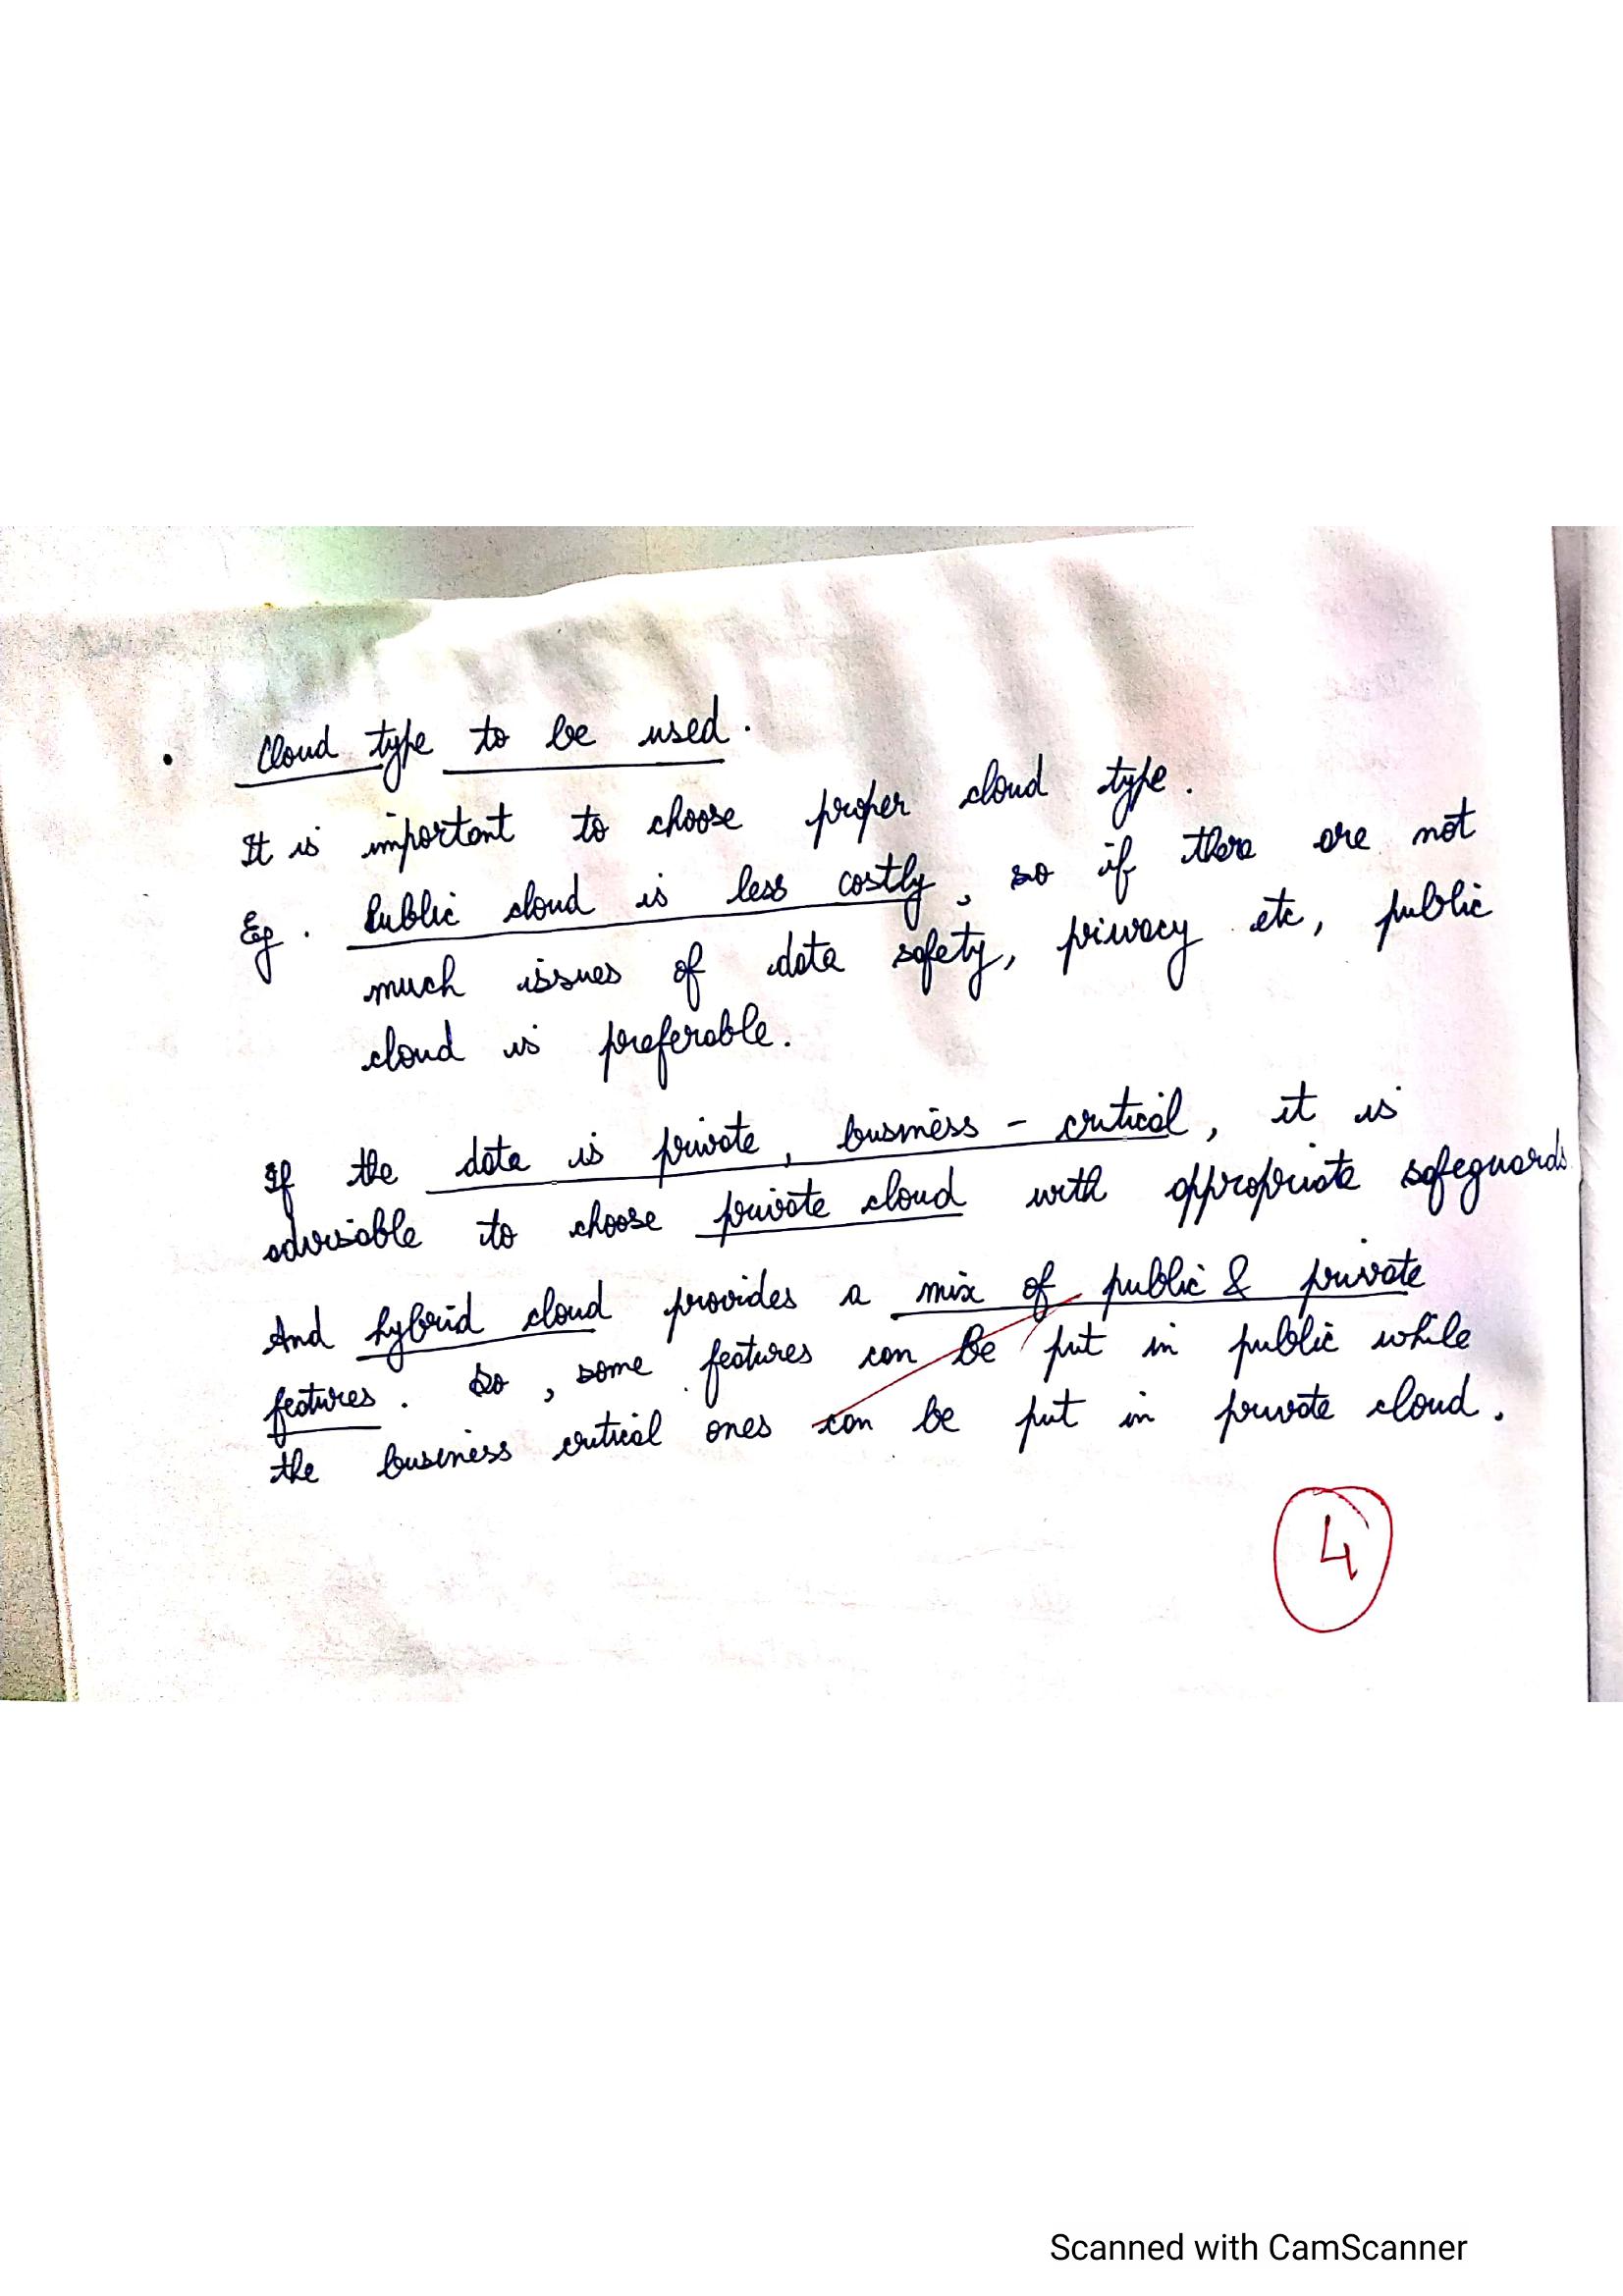 • Cloud type to be used.
It is important to choose proper cloud type.
Eg. Public cloud is less costly, so if there are not
much issues of data safety, privacy etc, public
cloud is preferable.
If the data is private, business - critical, it is
advisable to choose private cloud with appropriate safeguards.
And hybrid cloud provides a mix of public & private
features. So, some features can be put in public while
the business critical ones can be put in private cloud.
4
Scanned with CamScanner